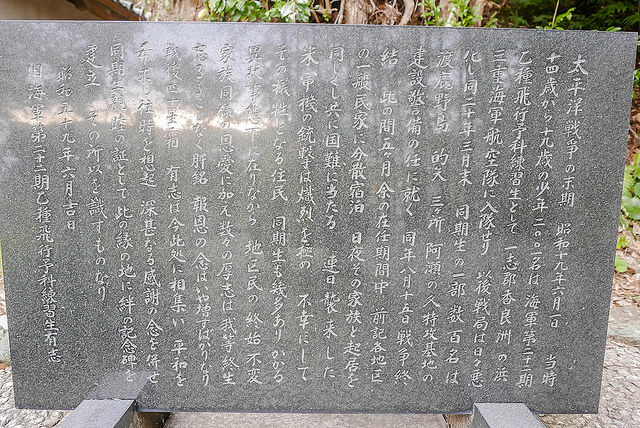 太平洋戦争の末期 昭和十九年六月一日 当時
十四歳から十九歳の少年二〇〇二名は 海軍第二十二期
乙種飛行予科練習生として 一志郡香良洲の浜
三重海軍航空隊に入隊せり 以後戦局は日々悪
化し同二十年三月末 同期生の一部数百名は
渡鹿野島 的矢 三ヶ所 阿瀬の久特攻基地の
建設警備の任に就く 同年八月十五日戦争終
結 此の間五ヶ月余の在任期間中 前記各地区
の一般民家に分散宿泊 日夜その家族と起居を
同じくし共に国難に当たる 連日襲来した
米軍機の銃撃は熾烈を極め 不幸にして
その犠牲となる住民 同期生も幾多あり かかる
異状事態下に在りながら 地区民の終始不変
家族同様の恩愛に加え数々の厚志は我等終生
忘るることなく肝銘 報恩の念はいや増すばかりなり
戦後四十星霜 有志は今此処に相集い 平和を
希求し往時を想起 深甚なる感謝の念を併せ
同期生親睦の証として此の縁の地に絆の記念碑を
建立 その所以を識すものなり
昭和五十九年六月吉日
旧海軍第二十二期乙種飛行予科練習生有志